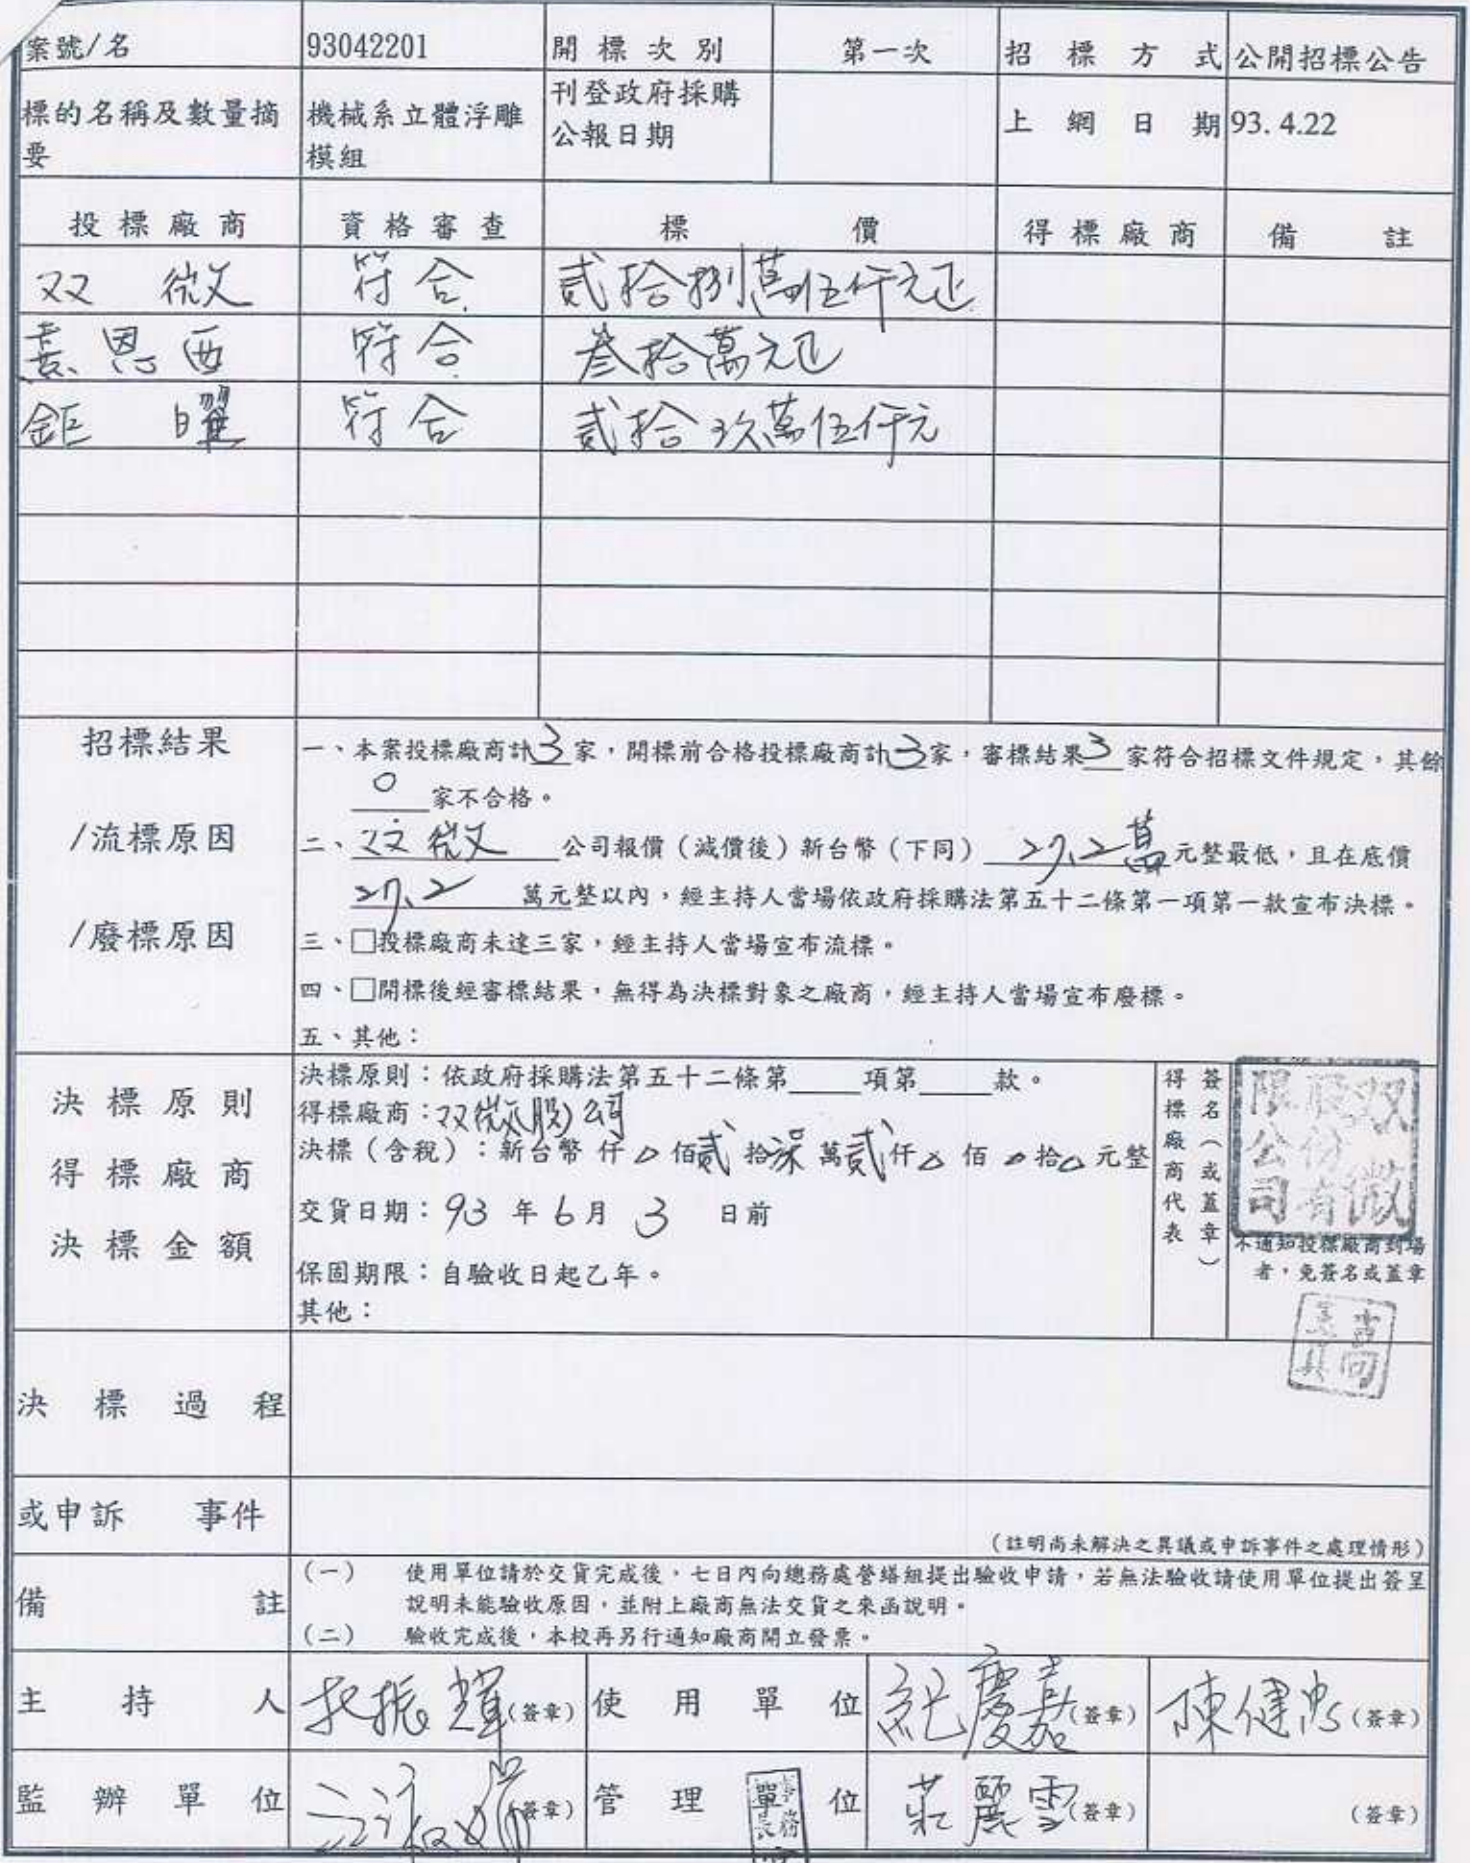 案號/名 93042201 開標次別 第一次 招標方式 公開招標公告
標的名稱及數量摘要 機械系立體浮雕模組 刊登政府採購公報日期 上網日期 93.4.22
投標廠商 資格審查 標價 得標廠商 備註
双微 符合 貳拾捌萬伍仟元正
恩西 符合 叁拾萬元正
鉅曜 符合 貳拾玖萬伍仟元
招標結果
/流標原因
/廢標原因
一、本案投標廠商計3家,開標前合格投標廠商計3家,審標結果3家符合招標文件規定,其餘
0家不合格。
二、双微公司報價(減價後)新台幣(下同)27.2萬元整最低,且在底價
27.2萬元整以內,經主持人當場依政府採購法第五十二條第一項第一款宣布決標。
三、□投標廠商未達三家,經主持人當場宣布流標。
四、□開標後經審標結果,無得為決標對象之廠商,經主持人當場宣布廢標。
五、其他:
決標原則
得標廠商
決標金額
決標原則:依政府採購法第五十二條第____項第____款。
得標廠商:双微股)公司
決標(含稅):新台幣 仟0佰貳拾柒萬貳仟0佰0拾0元整
交貨日期:93年6月3日前
保固期限:自驗收日起乙年。
其他:
得標廠商代表
簽名(或蓋章)
双微股份有限公司
不通知投標廠商到場
者,免簽名或蓋章
決標過程
或申訴 事件
(註明尚未解決之異議或申訴事件之處理情形)
備註
(一) 使用單位請於交貨完成後,七日內向總務處營繕組提出驗收申請,若無法驗收請使用單位提出簽呈
說明未能驗收原因,並附上廠商無法交貨之來函說明。
(二) 驗收完成後,本校再另行通知廠商開立發票。
主持人 振輝(簽章) 使用單位 紀慶嘉(簽章) 陳健忠(簽章)
監辦單位 (簽章) 管理單位 莊麗雪(簽章) (簽章)